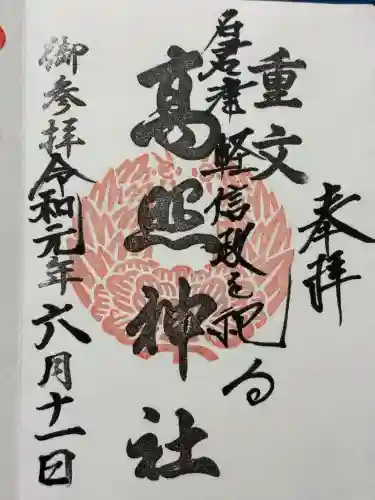 奉拝
重文
津軽信政を祀る
高照神社
御参拝令和元年六月十一日